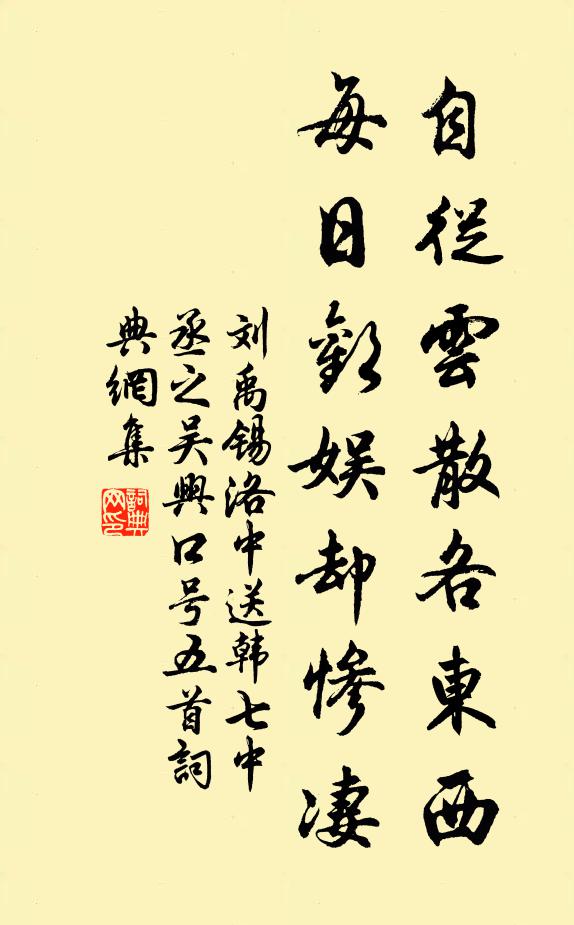 自從雲散各東西
每日歡娛却慘凄
刘禹锡洛中送韩七中
丞之吴興口号五首詞
典網集
詞典网印